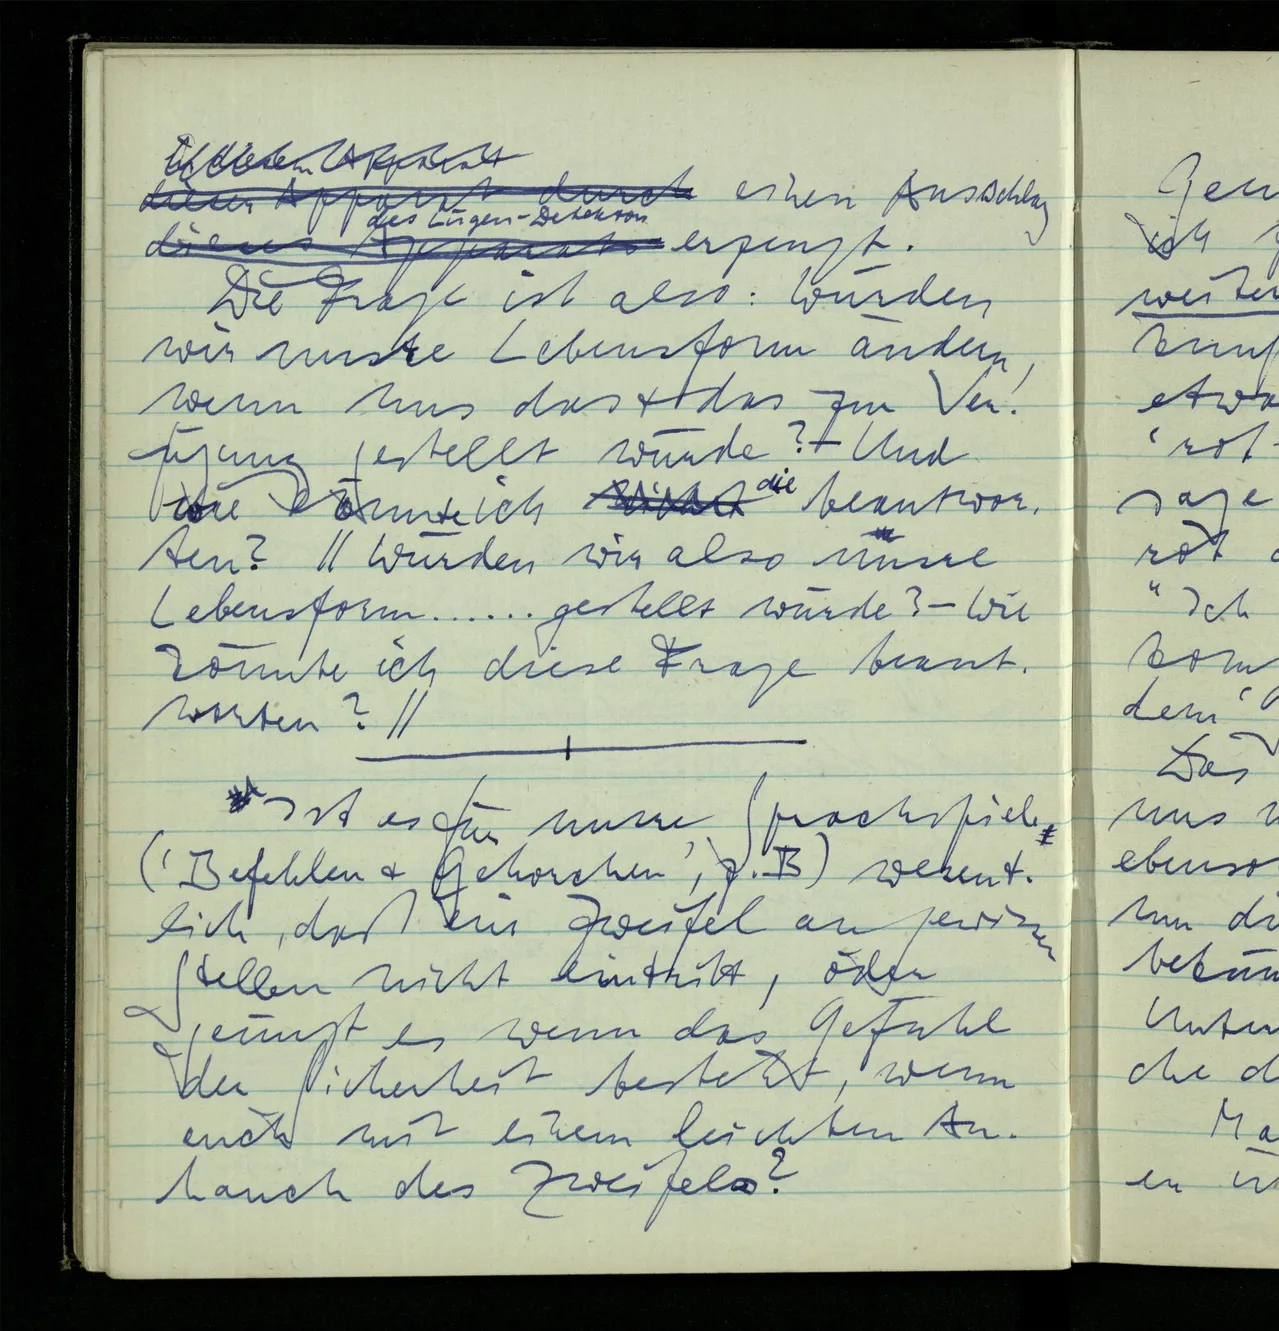 diesen Apparat
dieser Apparat durch einen Ausschlag
des Lügen-Detektors
dieses Apparats erzeugt.
Die Frage ist also: Würden
wir unsre Lebensform ändern,
wenn uns das & das zur Ver-
fügung gestellt würde? – Und
wie könnte ich die beantwor-
ten? // Würden wir also unsre
Lebensform ...... gestellt würde? – Wie
könnte ich diese Frage beant-
worten? //
Ist es für unsre Sprachspiele
('Befehlen & Gehorchen', z.B) wesent-
lich, daß ein Zweifel an gewissen
Stellen nicht eintritt, oder
genügt es wenn das Gefühl
der Sicherheit besteht, wenn
auch mit einem leichten An-
hauch des Zweifels?
ich
weiter
etwa
'rot
sage
rot
"Ich
dem'
Das
uns
ebenso